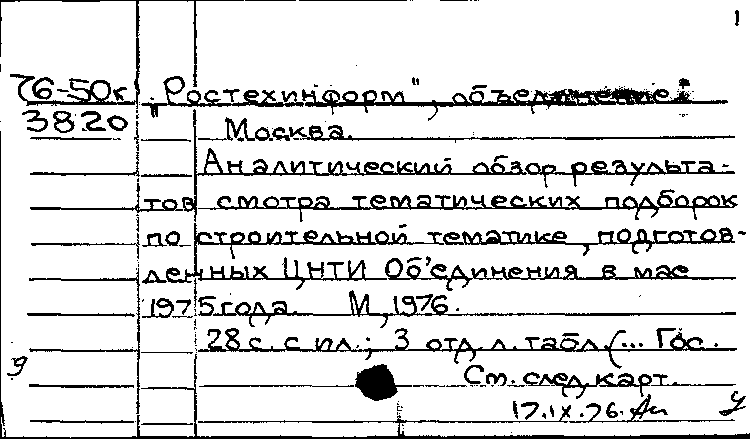 1
76-50к „Ростехинформ", объединение.
3820 Москва.
Аналитический обзор результа-
тов смотра тематических подборок
по строительной тематике, подготов-
ленных ЦНТИ Об'единения в мае
1975 года. М, 1976.
28 с. с ил.; 3 отд. л. табл. (... Гос.
9 См. след. карт.
17.IX.76.